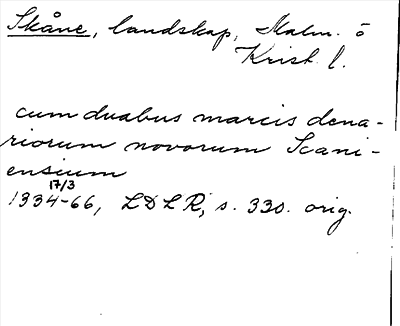 Skåne, landskap, Malm. ö
Krist. l.
cum duabus marcis dena-
riorum novorum Scani-
ensium
17/3
1334-66, LDLR, s. 330. orig.